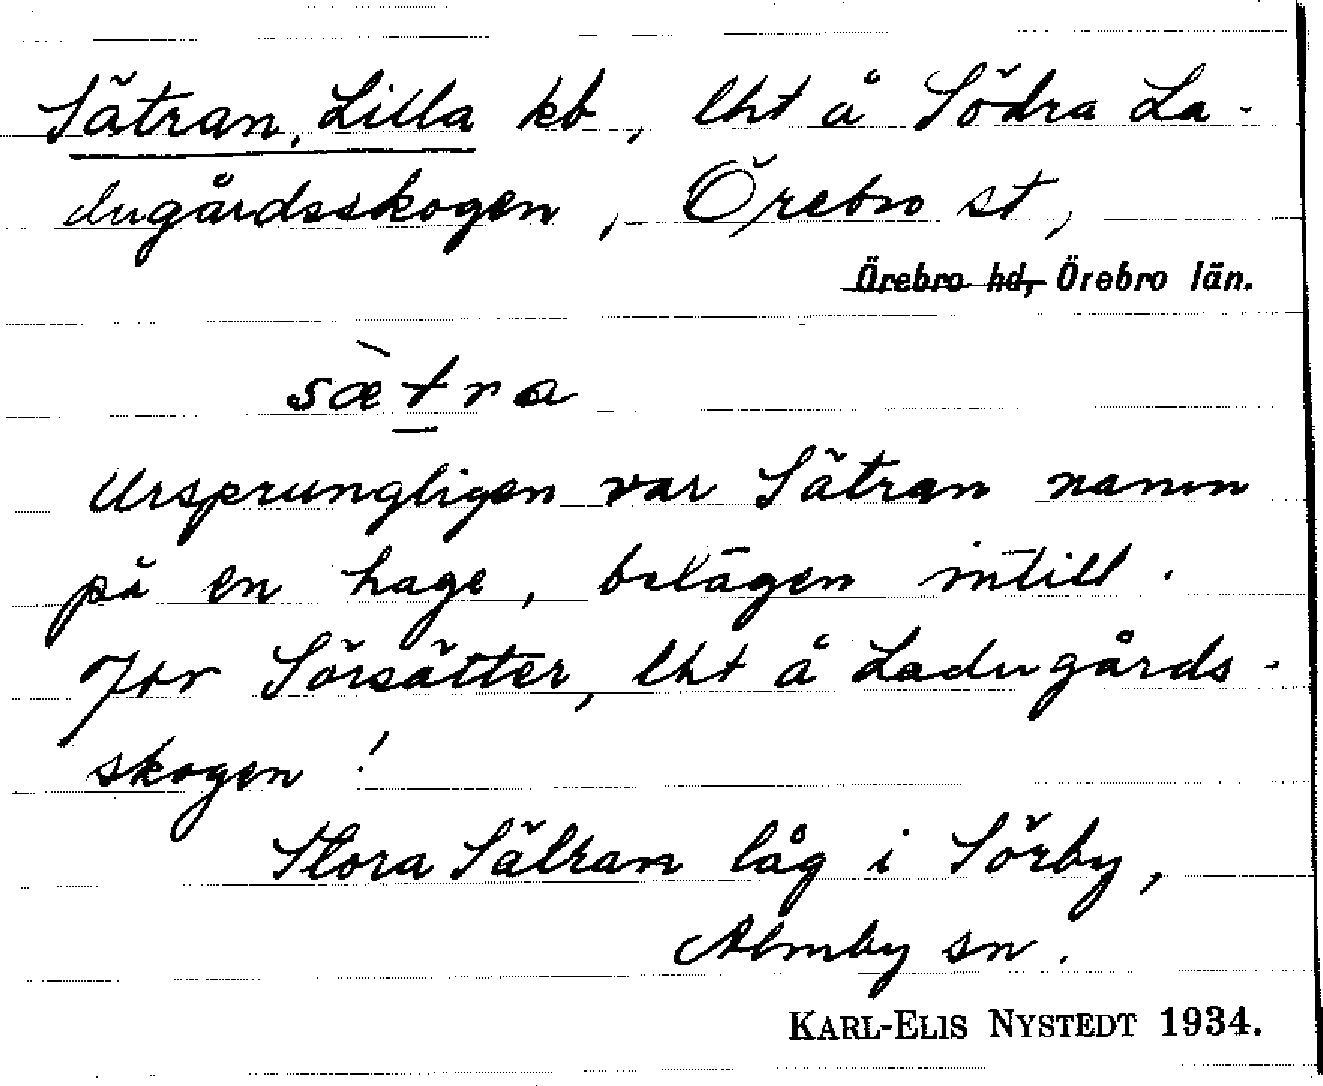 Sätran, Lilla kb, lht å Södra La-
dugårdsskogen, Örebro st,
Örebro hd, Örebro län.
sæ̀tra
Ursprungligen var Sätran namn
på en hage, belägen intill.
Jfr Sörsätter, lht å Ladugårds-
skogen!
Stora Sätran låg i Sörby,
Almby sn.
KARL-ELIS NYSTEDT 1934.